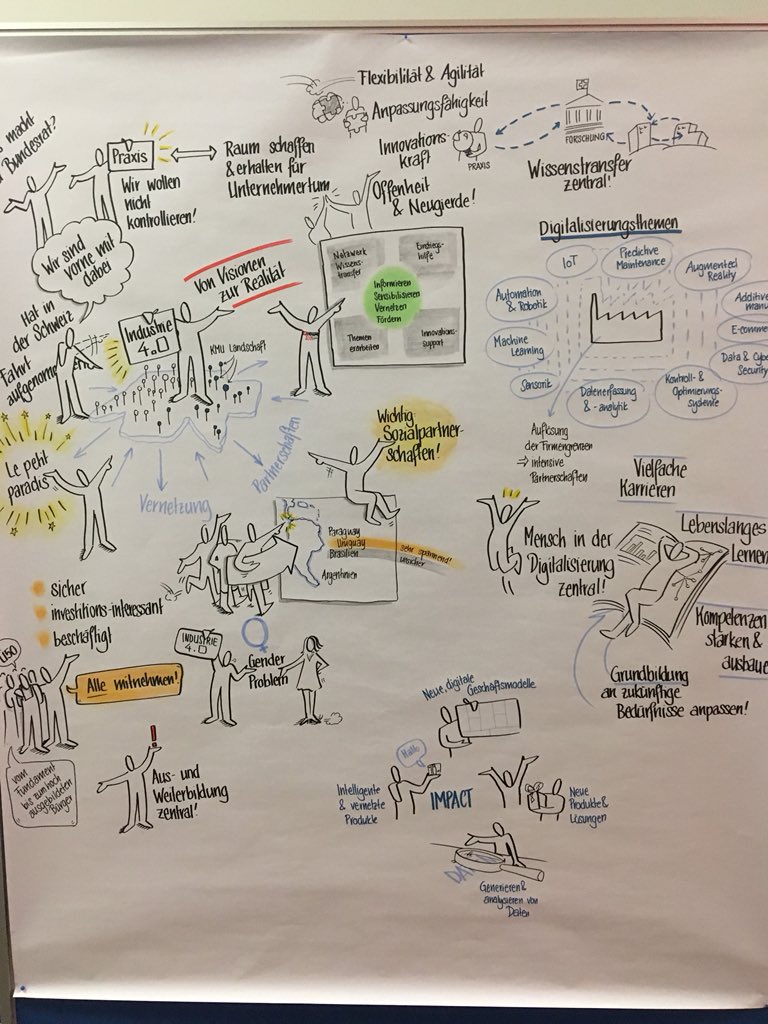 macht
Bundesrat?
Praxis
Wir wollen
nicht
kontrollieren!
Raum schaffen
& erhalten für
Unternehmertum
Flexibilität & Agilität
Anpassungsfähigkeit
Innovations-
kraft
Offenheit
& Neugierde!
PRAXIS
FORSCHUNG
Wissenstransfer
zentral!
Wir sind
vorne mit
dabei
Von Visionen
zur Realität
Hat in
der Schweiz
Fahrt
aufgenommen
Industrie
4.0
KMU Landschaft
Netzwerk
Wissens-
transfer
Einstiegs-
hilfe
Informieren
Sensibilisieren
Vernetzen
Fördern
Themen
erarbeiten
Innovations-
support
Digitalisierungsthemen
IoT
Predictive
Maintenance
Augmented
Reality
Automation
& Robotik
Additive
manu
E-comme
Machine
Learning
Data & Cybe
Security
Sensorik
Datenerfassung
& -analytik
Kontroll- &
Optimierungs-
systeme
Auflösung
der Firmengrenzen
⇒ intensive
Partnerschaften
Le petit
paradis
Vernetzung
Partnerschaften
Wichtig
Sozialpartner-
schaften!
Paraguay
Uruguay
Brasilien
Argentinien
sehr spannend!
unsicher
Vielfache
Karrieren
Lebenslanges
Lernen
Mensch in der
Digitalisierung
zentral!
Kompetenzen
stärken &
ausbaue
Grundbildung
an zukünftige
Bedürfnisse anpassen!
sicher
investitions-interessant
beschäftigt
U50
Alle mitnehmen!
INDUSTRIE
4.0
Gender
Problem
vom
Fundament
bis zum hoch
ausgebildeten
Bürger
Aus- und
Weiterbildung
zentral!
Neue, digitale
Geschäftsmodelle
Hallo
Intelligente
& vernetzte
Produkte
IMPACT
Neue
Produkte &
Lösungen
Generieren &
analysieren von
Daten